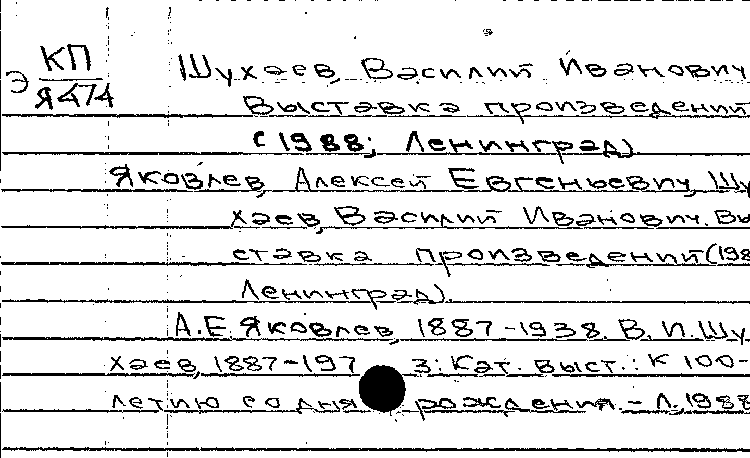 Э КП
Я474
Шухаев, Василий Иванович
Выставка произведений
(1988; Ленинград)
Яковлев, Алексей Евгеньевич, Шу
хаев, Василий Иванович. Вы
ставка произведений (198
Ленинград).
А.Е. Яковлев, 1887-1938. В.И. Шу
хаев, 1887-197 3: Кат. выст.: К 100-
летию со дня рождения. - Л., 1988